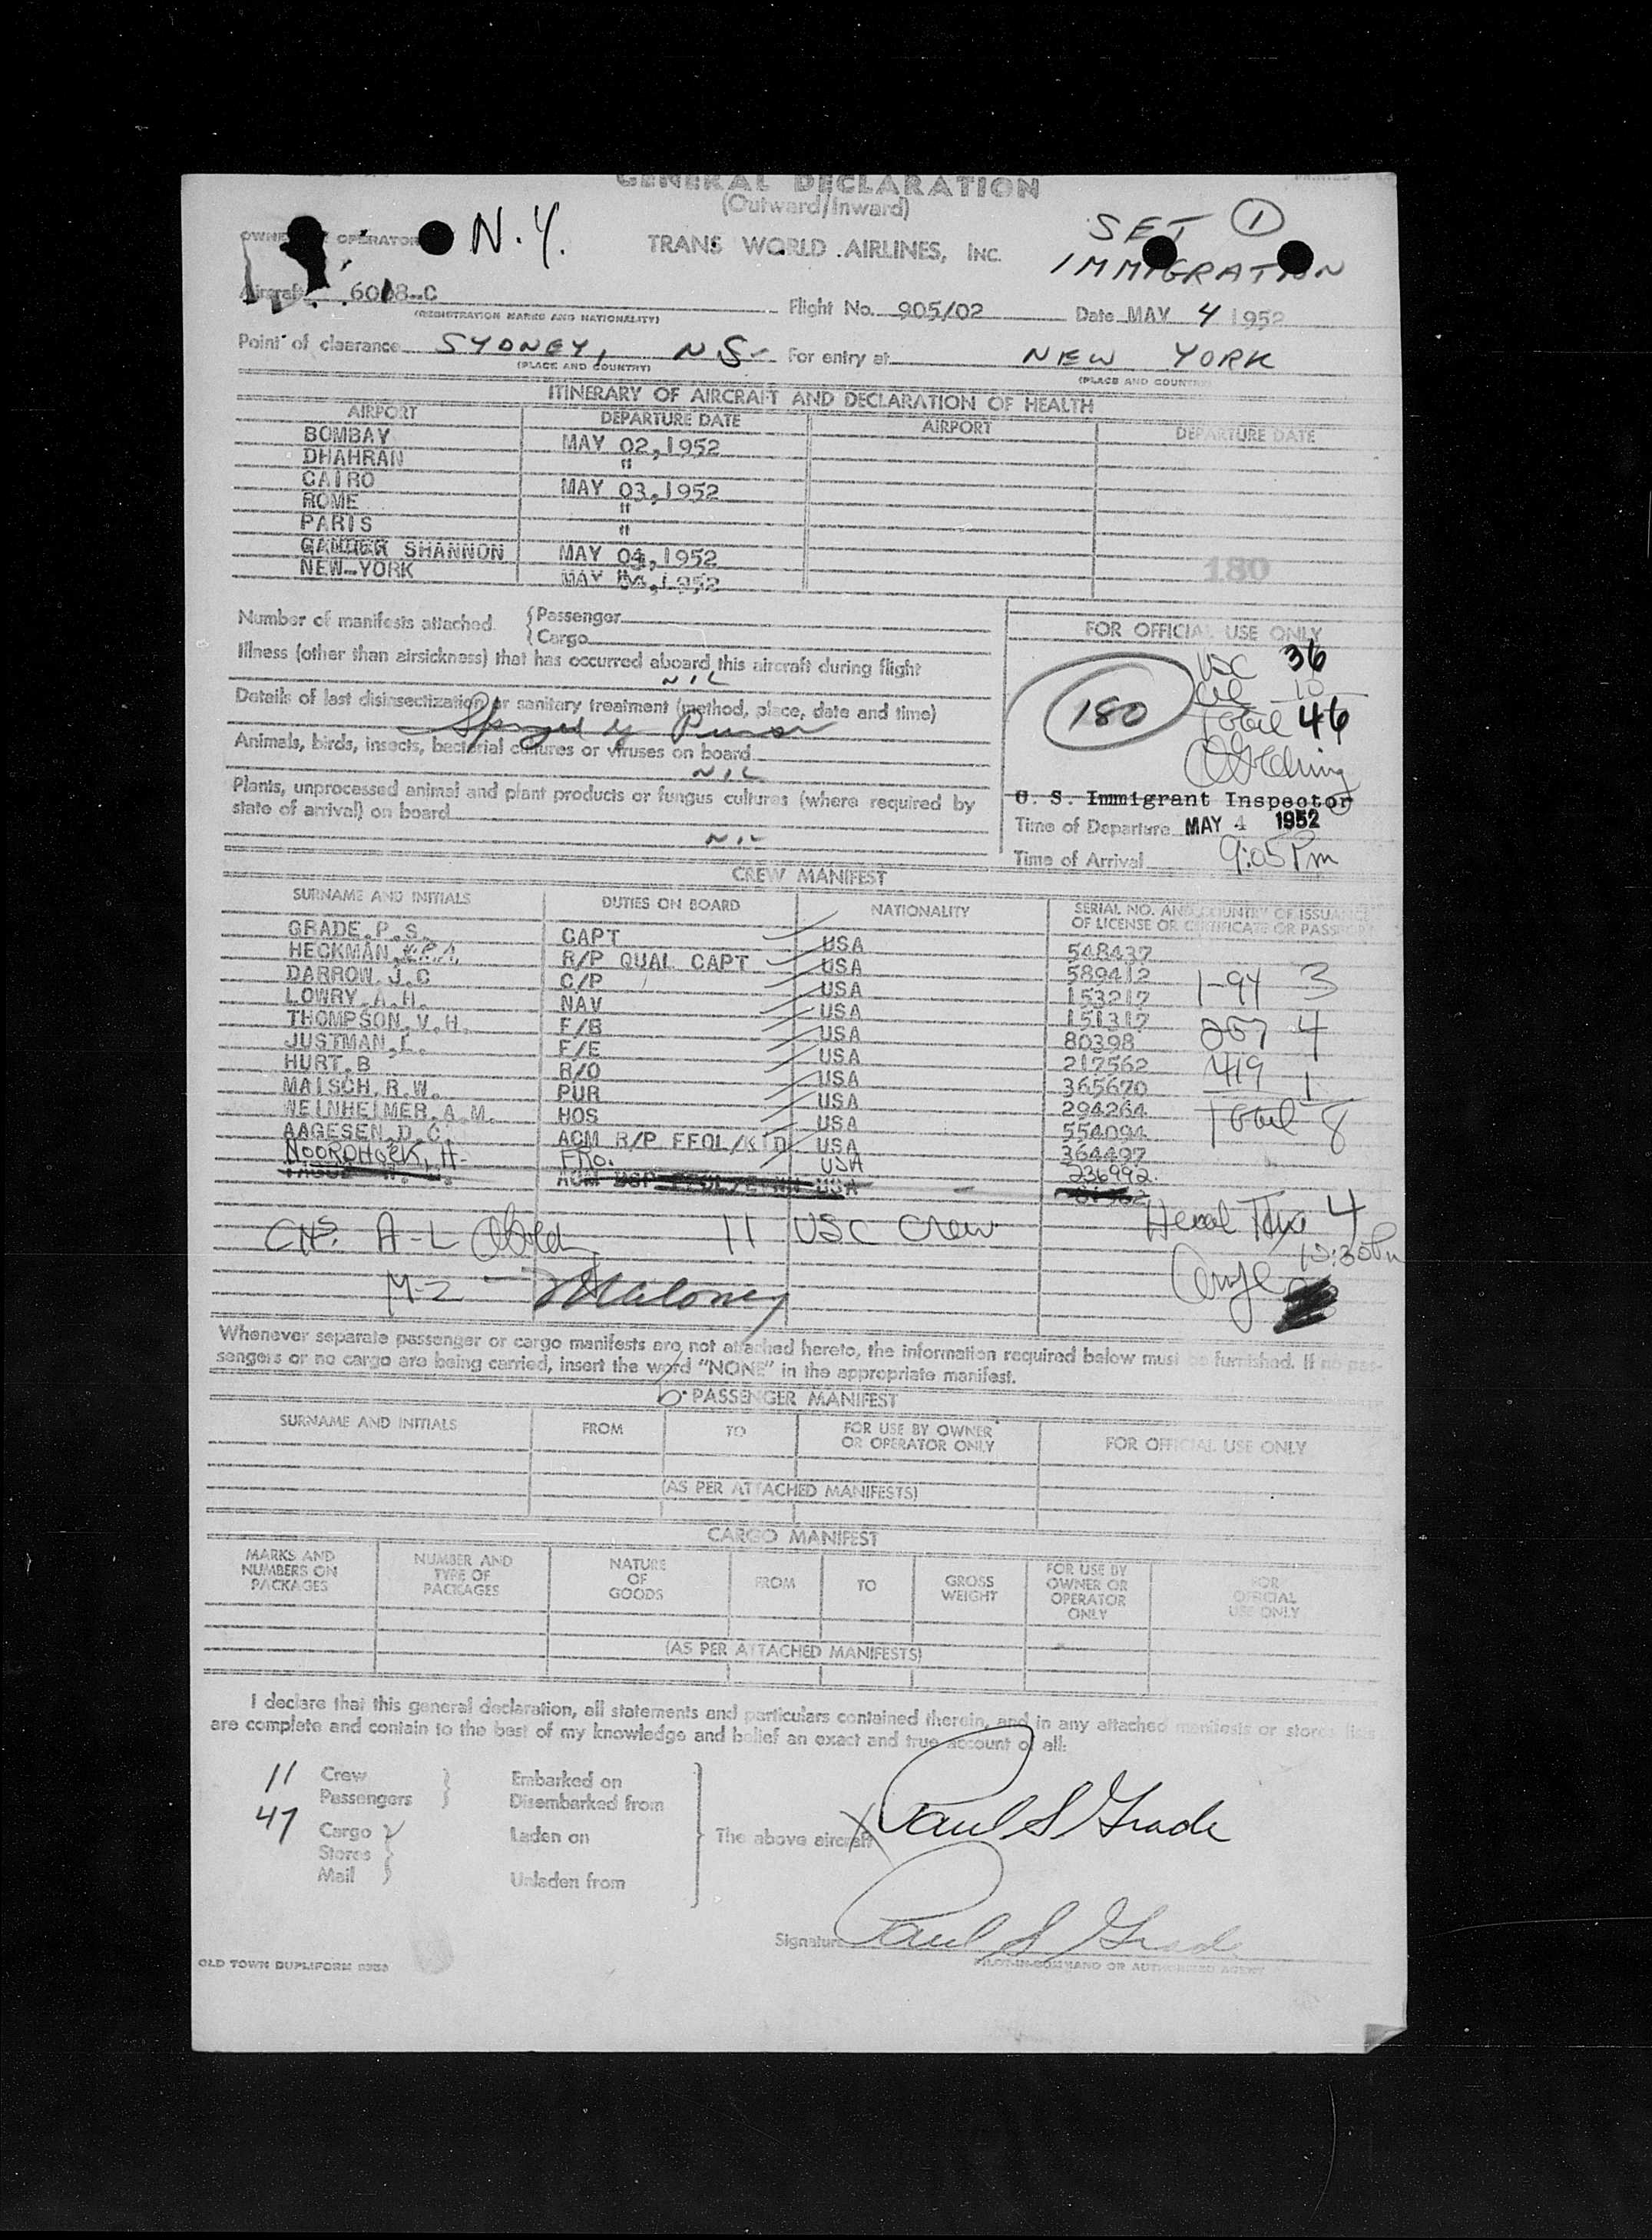 GENERAL DECLARATION
(Outward/Inward)
OPERATOR N.Y. TRANS WORLD AIRLINES, INC. SET 1
IMMIGRATION
Aircraft 6018-C Flight No. 905/02 Date MAY 4 1952
(REGISTRATION MARKS AND NATIONALITY)
Point of clearance SYDNEY, NS For entry at NEW YORK
(PLACE AND COUNTRY) (PLACE AND COUNTRY)
ITINERARY OF AIRCRAFT AND DECLARATION OF HEALTH
AIRPORT DEPARTURE DATE AIRPORT DEPARTURE DATE
BOMBAY MAY 02,1952
DHAHRAN "
CAIRO MAY 03,1952
ROME "
PARIS "
GANDER SHANNON MAY 04,1952
NEW-YORK MAY 04,1952
180
Number of manifests attached Passenger
Cargo
FOR OFFICIAL USE ONLY
Illness (other than airsickness) that has occurred aboard this aircraft during flight
NIL
USC 36
10
Total 46
180
Details of last disinsectization or sanitary treatment (method, place, date and time)
Animals, birds, insects, bacterial cultures or viruses on board
NIL
Plants, unprocessed animal and plant products or fungus cultures (where required by
state of arrival) on board
NIL
U. S. Immigrant Inspector
Time of Departure MAY 4 1952
Time of Arrival 9:05 Pm
CREW MANIFEST
SURNAME AND INITIALS DUTIES ON BOARD NATIONALITY SERIAL NO. AND COUNTRY OF ISSUANCE
OF LICENSE OR CERTIFICATE OR PASSPORT
GRADE.P.S. CAPT USA 548437
HECKMAN R/P QUAL CAPT USA 589412
DARROW.J.C C/P USA 153217
LOWRY.A.H. NAV USA 151317
THOMPSON.V.H. F/E USA 80398
JUSTMAN.L. F/E USA 217562
HURT.B R/O USA 365670
MAISCH.R.W. PUR USA 294264
WEINHEIMER.A.M. HOS USA 554094
AAGESEN.D.C. ACM R/P FFOL/KTD USA 364497
NOORDHOEK, H- FRO. USA 236992
1-94 3
257 4
419 1
Total 8
11 USC Crew
Head Tax 4
10:30 Pm
M-2 - Maloney
Whenever separate passenger or cargo manifests are not attached hereto, the information required below must be furnished. If no pas-
sengers or no cargo are being carried, insert the word "NONE" in the appropriate manifest.
PASSENGER MANIFEST
SURNAME AND INITIALS FROM TO FOR USE BY OWNER OR OPERATOR ONLY FOR OFFICIAL USE ONLY
(AS PER ATTACHED MANIFESTS)
CARGO MANIFEST
MARKS AND NUMBERS ON PACKAGES NUMBER AND TYPE OF PACKAGES NATURE OF GOODS FROM TO GROSS WEIGHT FOR USE BY OWNER OR OPERATOR ONLY FOR OFFICIAL USE ONLY
(AS PER ATTACHED MANIFESTS)
I declare that this general declaration, all statements and particulars contained therein, and in any attached manifests or stores lists
are complete and contain to the best of my knowledge and belief an exact and true account of all:
11 Crew Embarked on
47 Passengers Disembarked from
Cargo Laden on The above aircraft X Paul S Grade
Stores
Mail Unladen from
Signature Paul S Grade
PILOT-IN-COMMAND OR AUTHORIZED AGENT
OLD TOWN DUPLIFORM